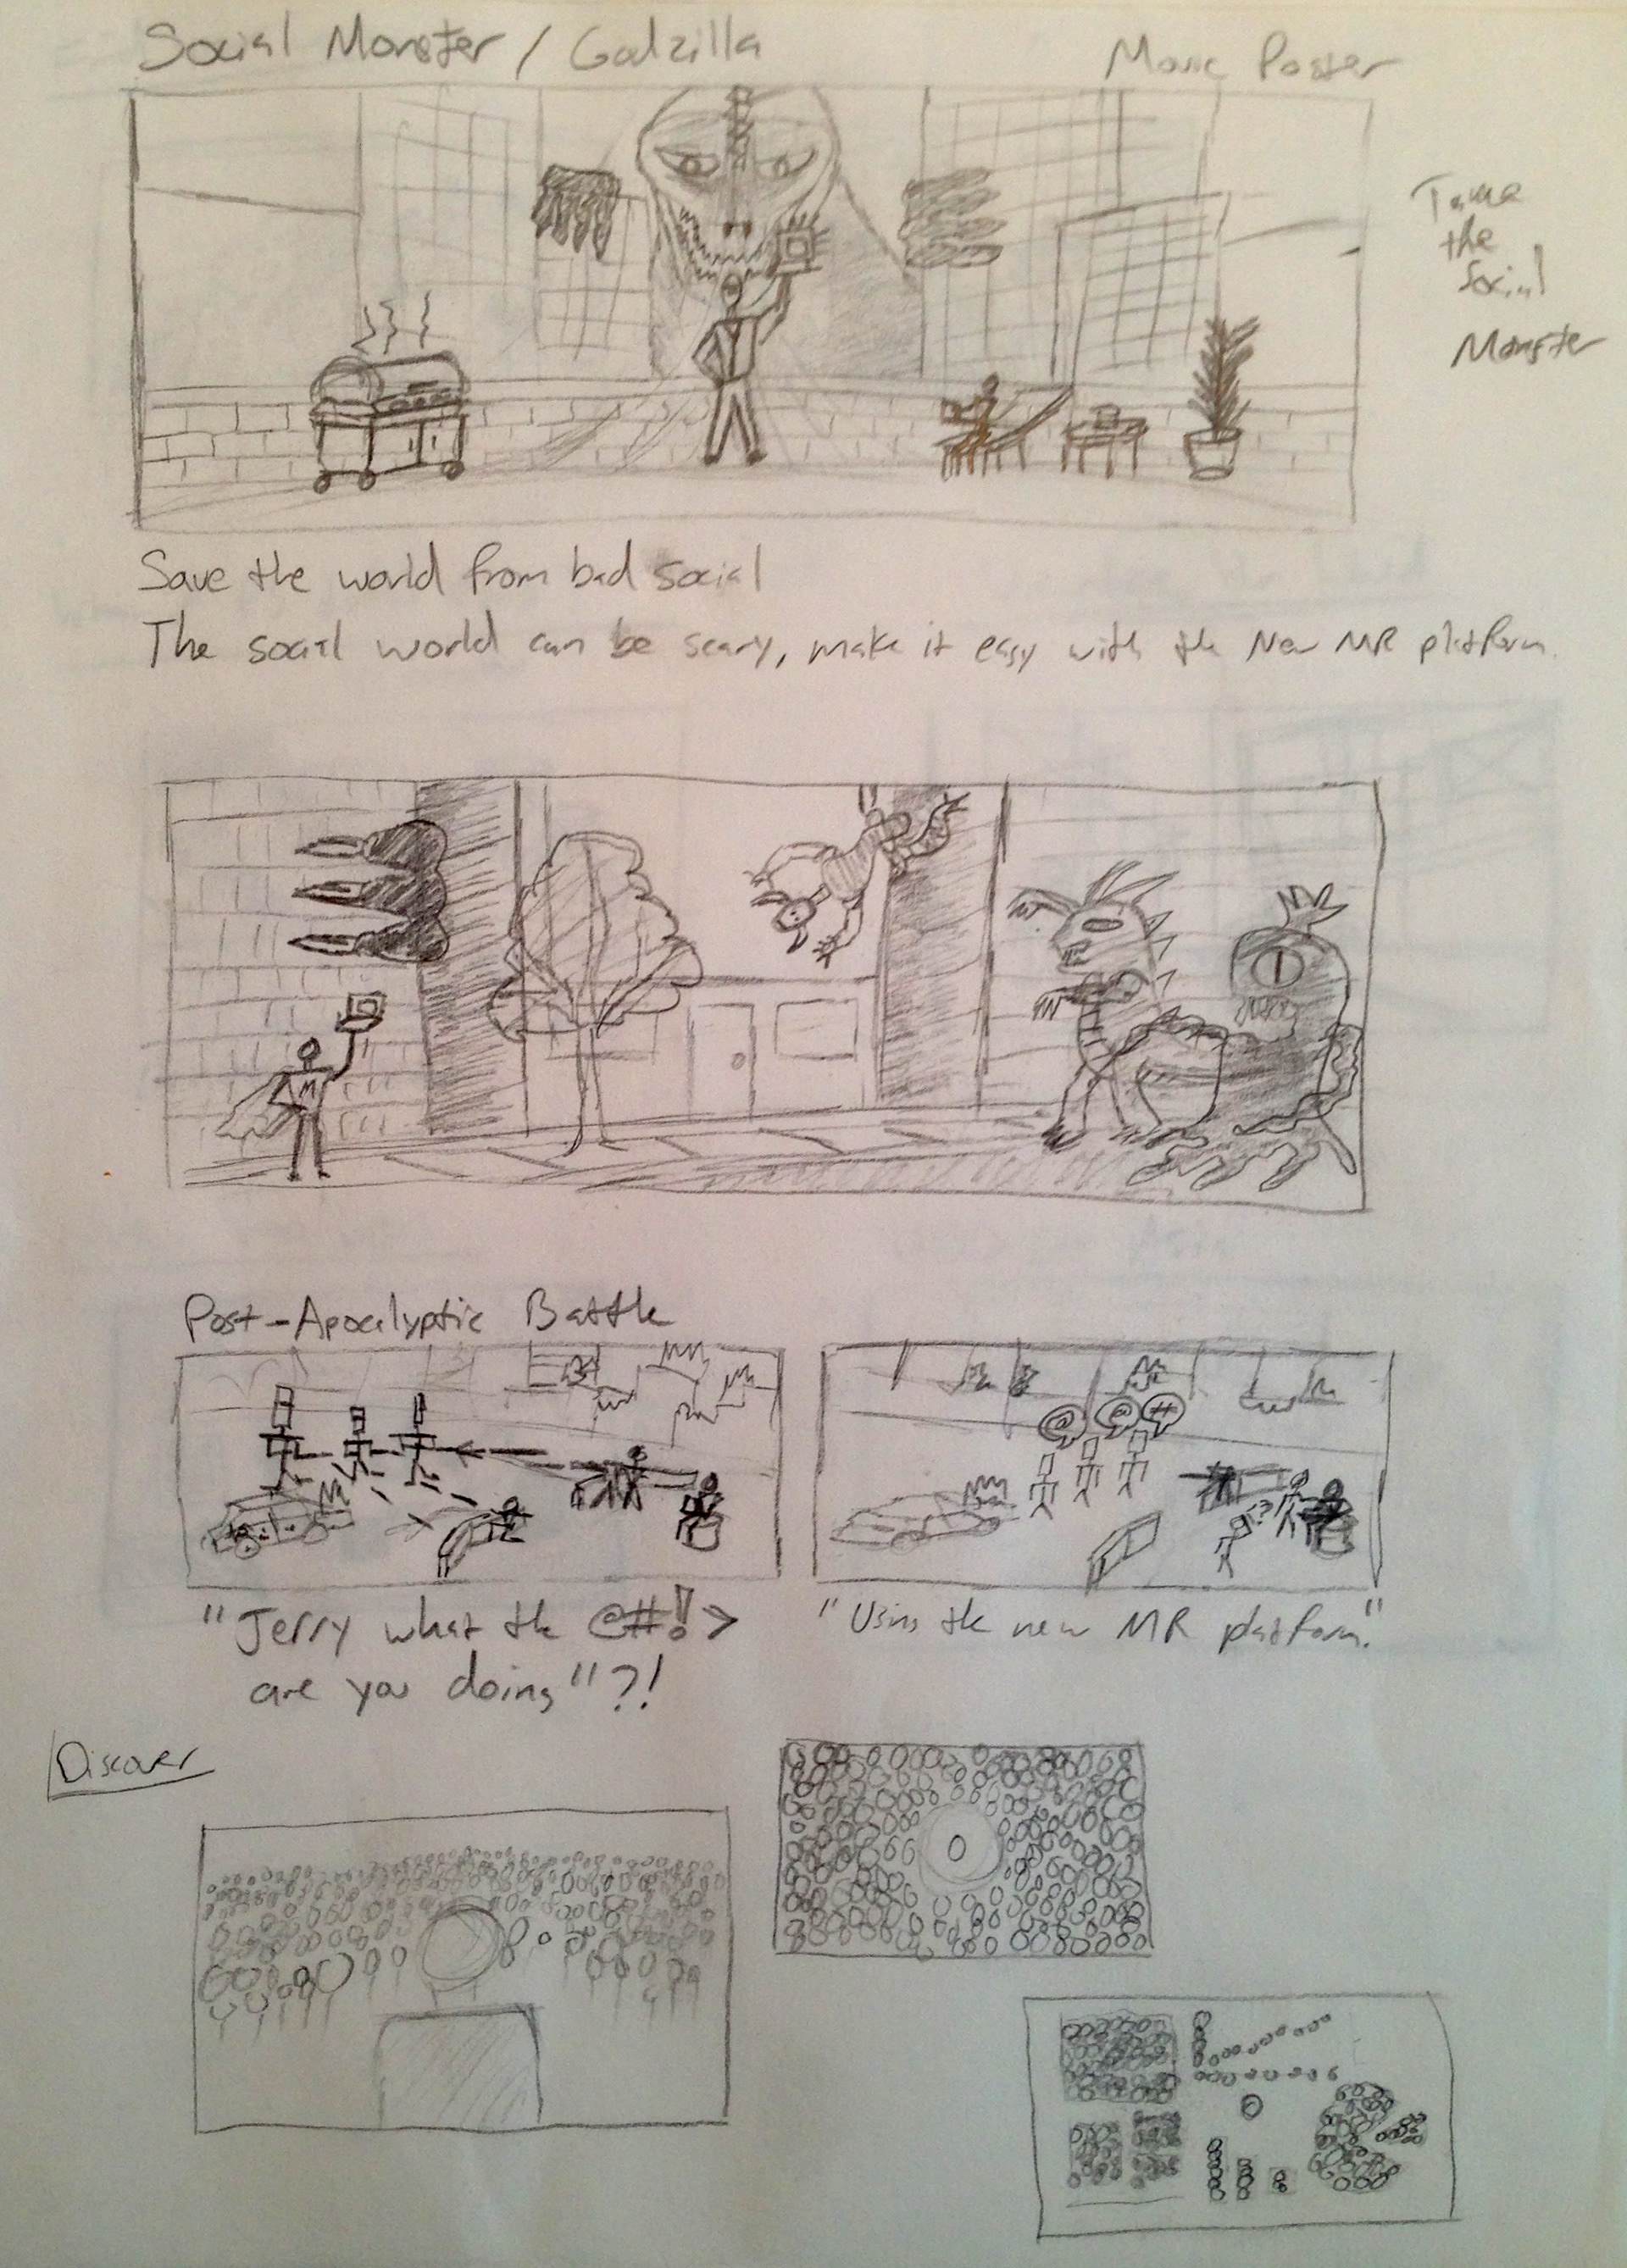 Social Monster / Godzilla
Movie Poster
Tame
the
Social
Monster
Save the world from bad social
The social world can be scary, make it easy with the New MR platform.
M
Post-Apocalyptic Battle
@ @ #
!?
"Jerry what the @#!>
are you doing"?!
"Using the new MR platform."
Discover